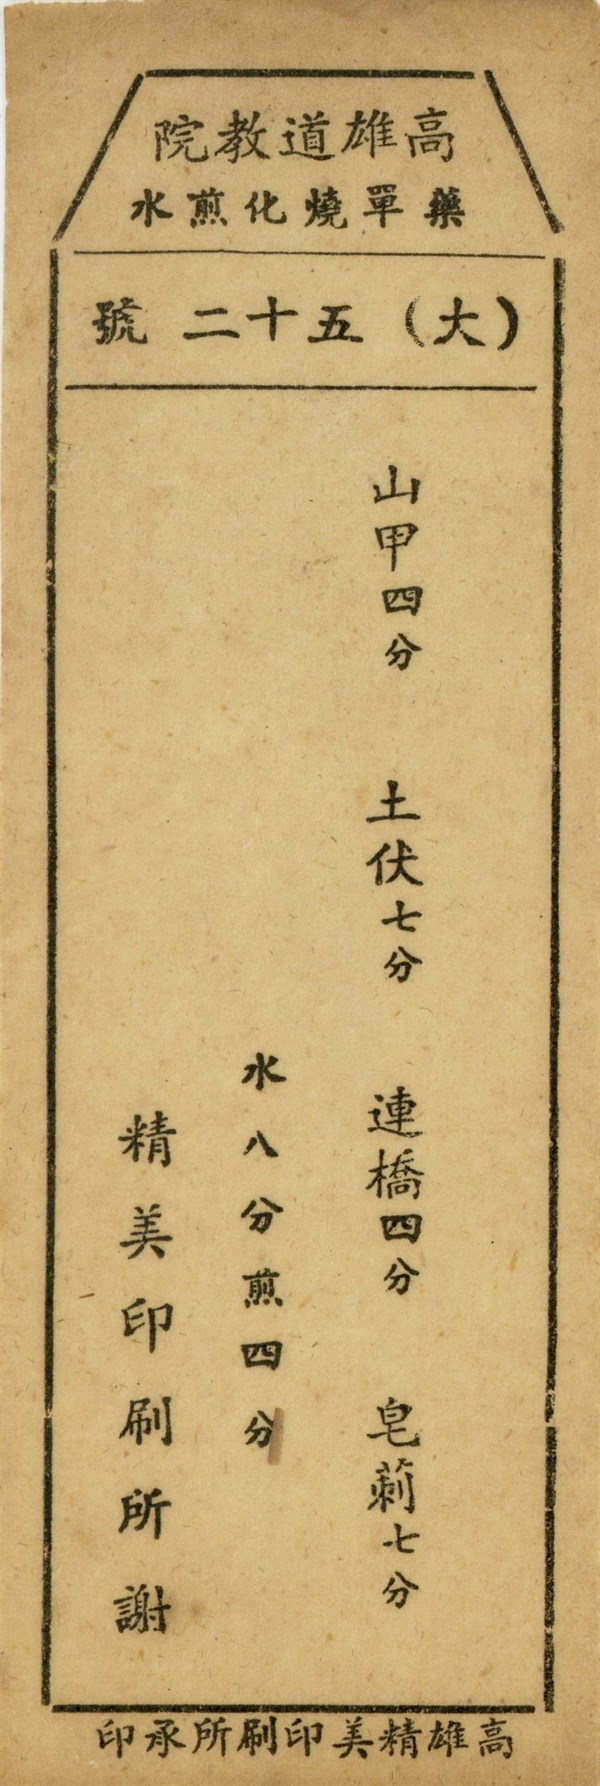 高雄道教院
藥單燒化煎水
（大）五十二號
山甲四分　土伏七分　連橋四分　皂莿七分
水八分煎四分
精美印刷所謝
高雄精美印刷所承印